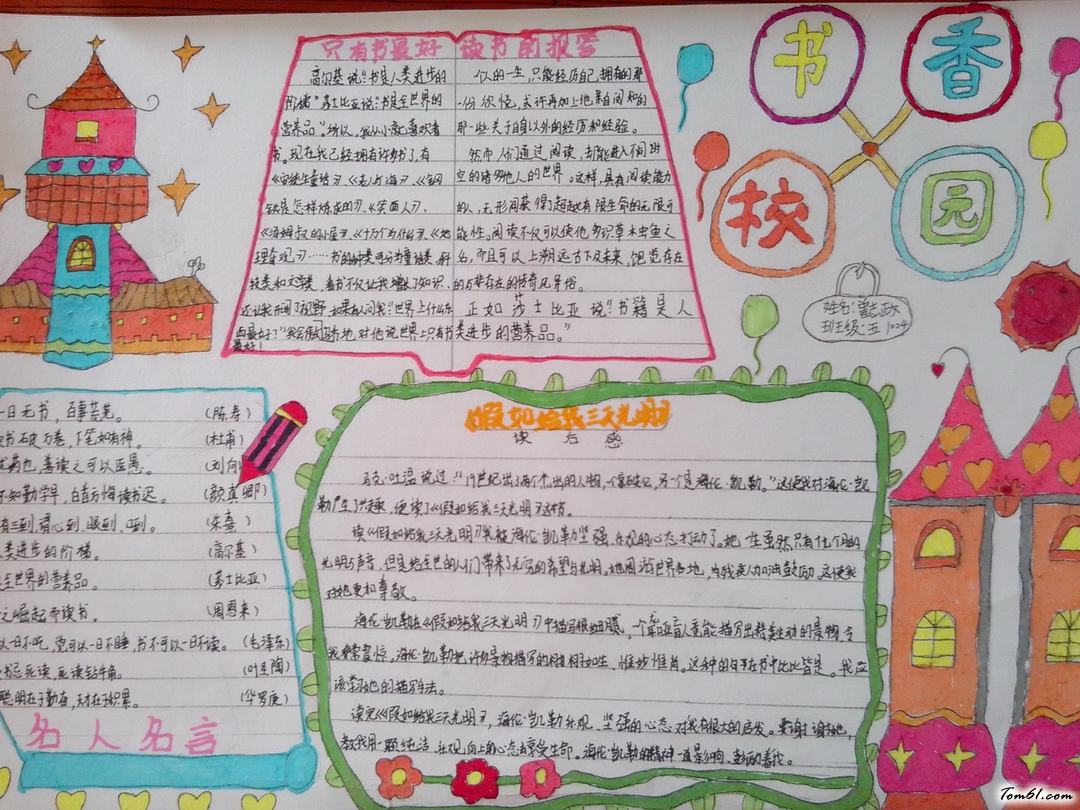 书 香
校 园
姓名:曾志政
班级:五
只有书最好
高尔基说:“书是人类进步的
阶梯”莎士比亚说:“书是全世界的
营养品”所以,我从小就喜欢看
书。现在我已经拥有许多书了,有
《安徒生童话》、《老人与海》、《钢
铁是怎样炼成的》、《笑面人》、
《汤姆叔叔的小屋》、《十万个为什么》、《地
看书不仅让我增长了知识,
还让我开阔了视野,如果有人问我:“世界上什么东
西最好?”我会
地对他说世界上只有书
最好!
读书的报答
人的一生,只能经历自己拥有的那
一份欣悦,
也许再加上他亲自闻知的
那一些关于自身以外的经历和经验。
然而,人们通过阅读,却能进入不同时
空的诸多他人的世界。这样,具有阅读能力
的人,无形间获得了超越有限生命的无限可
能性。阅读不仅可以使他多识草木虫鱼之
名,而且可以上溯远古下及未来,饱览存在
的与非存在的奇风异俗。
正如莎士比亚说:“书籍是人
类进步的营养品。”
一日无书,百事荒芜。(陈寿)
书破万卷,下笔如有神。(杜甫)
药也,善读之可以医愚。(刘向)
不知勤学早,白首方悔读书迟。(颜真卿)
有三到,谓心到,眼到,口到。(朱熹)
类进步的阶梯。(高尔基)
全世界的营养品。(莎士比亚)
之崛起而读书。(周恩来)
以一日不吃,觉可以一日不睡,书不可以一日不读。(毛泽东)
书忌死读,死读钻牛角。(叶圣陶)
聪明在于勤奋,天才在于积累。(华罗庚)
名人名言
《假如给我三天光明》
读后感
马克·吐温说过:“19世纪出了两个杰出的人物,一个是拿破仑,另一个是海伦·凯勒。”这使我对海伦·凯
勒产生了兴趣,便读了《假如给我三天光明》这本书。
读《假如给我三天光明》我被海伦·凯勒坚强、乐观的心态打动了。她一生虽然只有19个月的
光明与声音,但是给全世的人们带来了无穷的希望与光明。她周游世界各地,为残疾人加油鼓励,这使我
对她更加尊敬。
海伦·凯勒在《假如给我三天光明》中描写很细腻,一个聋哑盲人竟能描写出精美生动的景物令
我非常震惊,海伦·凯勒把许多景物描写的栩栩如生、惟妙惟肖。这种的句子在书中比比皆是。我应
该学习她的描写手法。
读完《假如给我三天光明》,海伦·凯勒乐观、坚强的心态对我有很大的启发。要谢谢她,
教我用一颗纯洁、乐观向上的心态去享受生命。海伦·凯勒的精神一直影响、鼓励着我。
Tom61.com